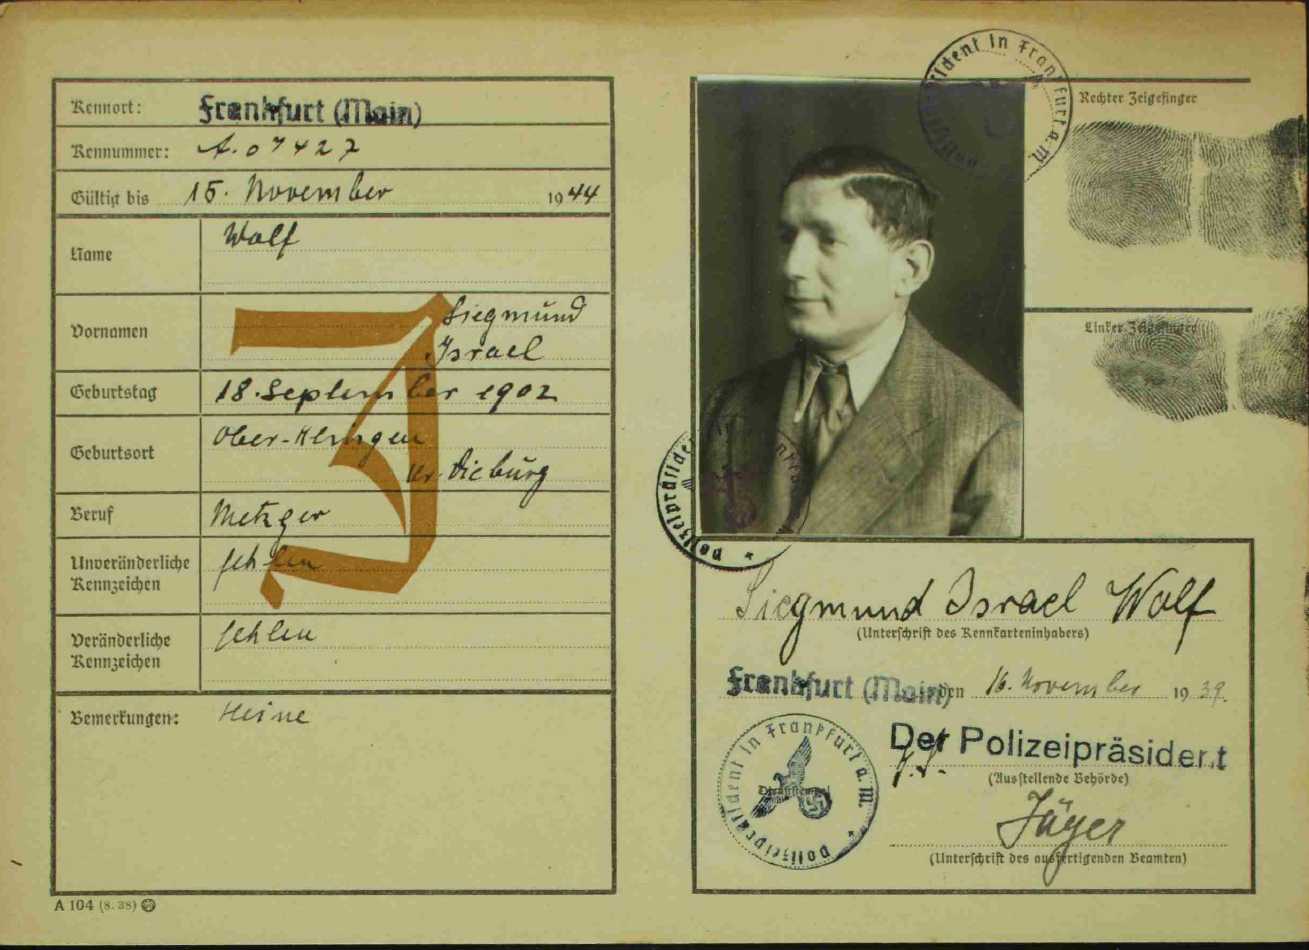 Kennort: Frankfurt (Main)
Kennummer: A.07427
Gültig bis 15. November 1944
Name Wolf
Vornamen Siegmund
Israel
Geburtstag 18. September 1902
Geburtsort Ober-Klingen
Kr. Dieburg
Beruf Metzger
Unveränderliche Kennzeichen fehlen
Veränderliche Kennzeichen fehlen
Bemerkungen: Keine
J
A 104 (8. 38)
Polizeipräsident in Frankfurt a. M.
Rechter Zeigefinger
Linker Zeigefinger
Polizeipräsident
Siegmund Israel Wolf
(Unterschrift des Kennkarteninhabers)
Frankfurt (Main) den 16. November 1939.
Der Polizeipräsident
(Ausstellende Behörde)
Jäger
(Unterschrift des ausfertigenden Beamten)
Polizeipräsident in Frankfurt a. M.
Dienststempel